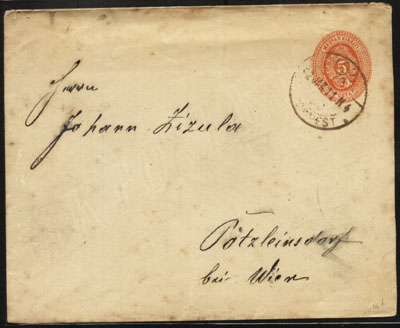 5
Herrn
Johann Zizula
Pötzleinsdorf
bei Wien